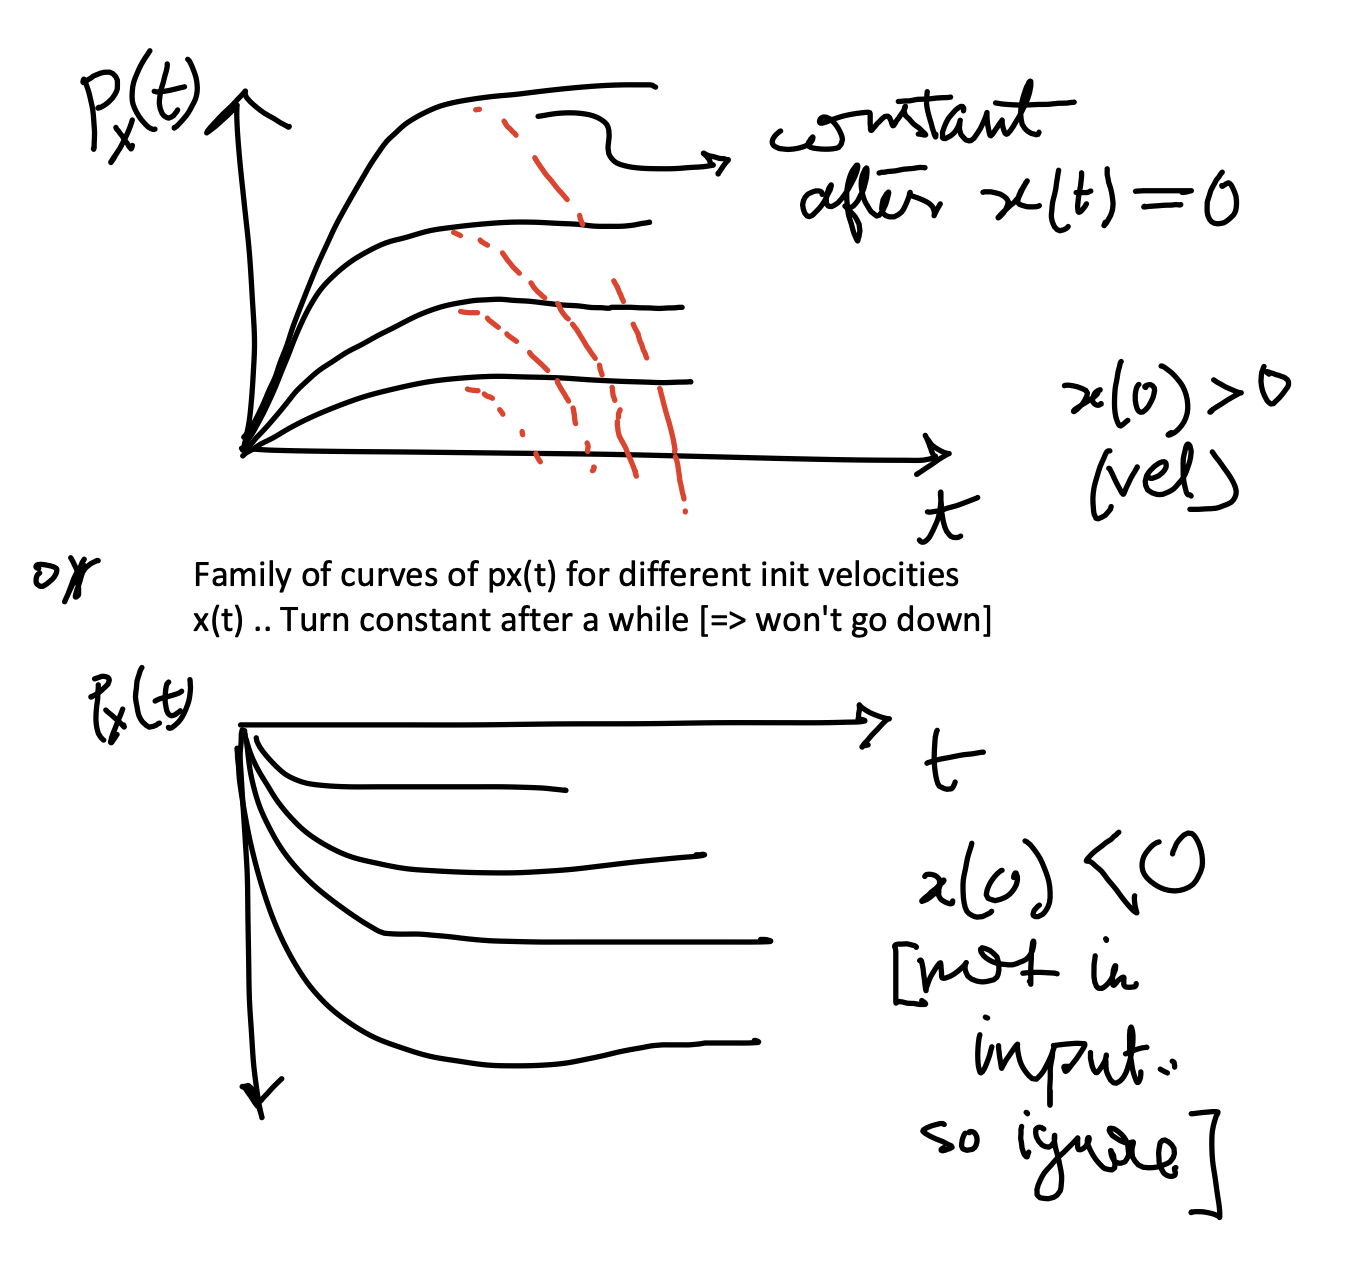 Px(t)
constant
after x(t) = 0
x(0) > 0
(vel)
t
or
Family of curves of px(t) for different init velocities
x(t) .. Turn constant after a while [=> won't go down]
Px(t)
t
x(0) < 0
[not in
input..
so ignore]